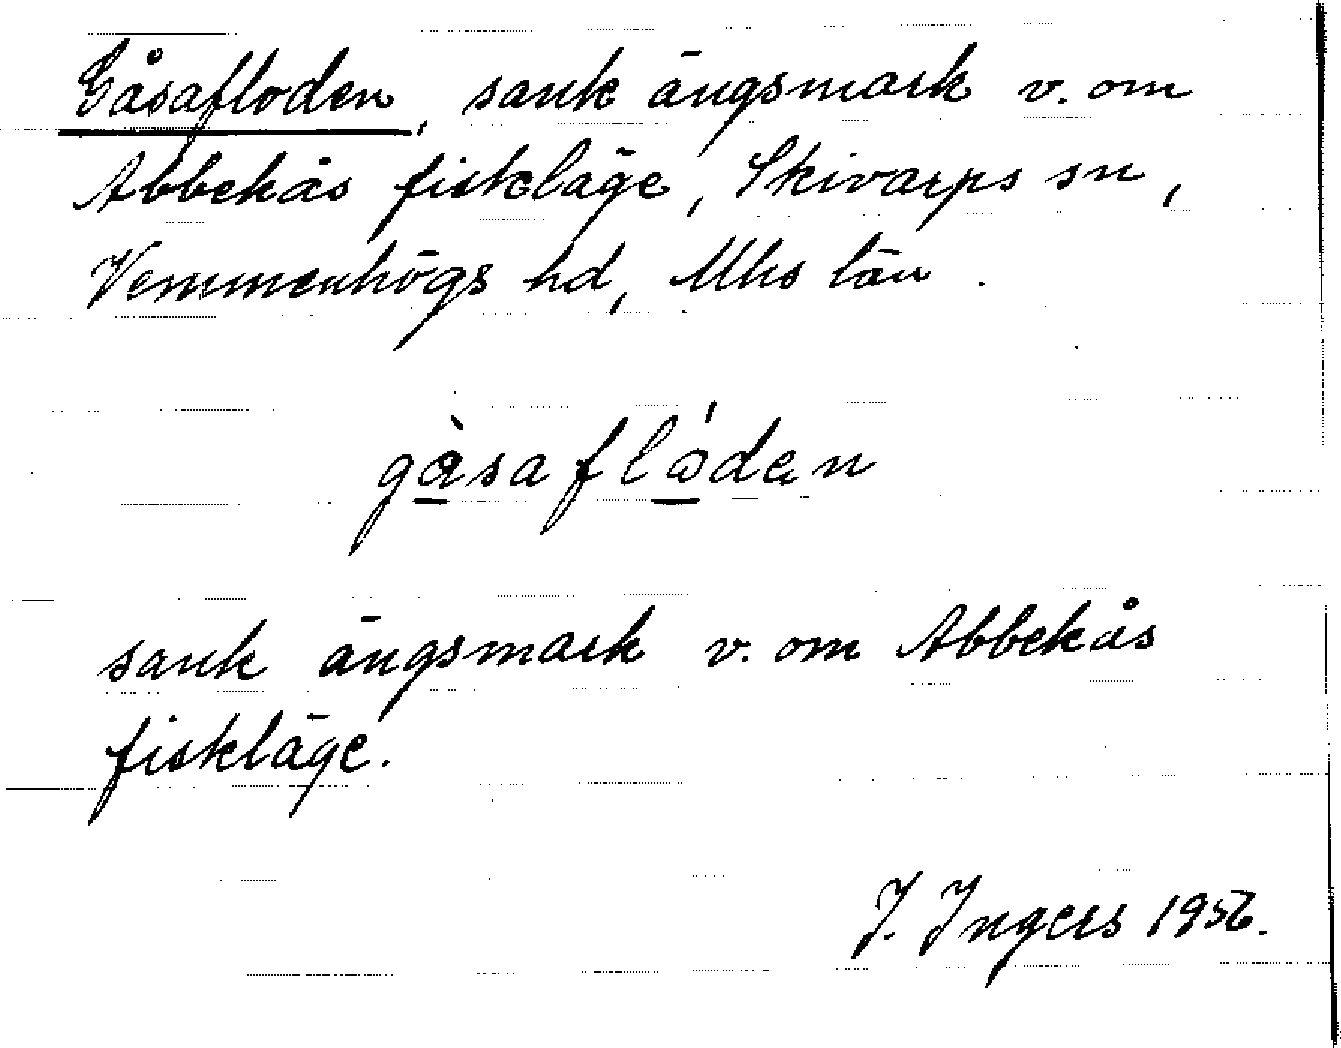 Gåsafloden, sank ängsmark v. om
Abbekås fiskläge, Skivarps sn,
Vemmenhögs hd, Mhs län.
gàsaflóden
sank ängsmark v. om Abbekås
fiskläge.
J. Ingers 1956.